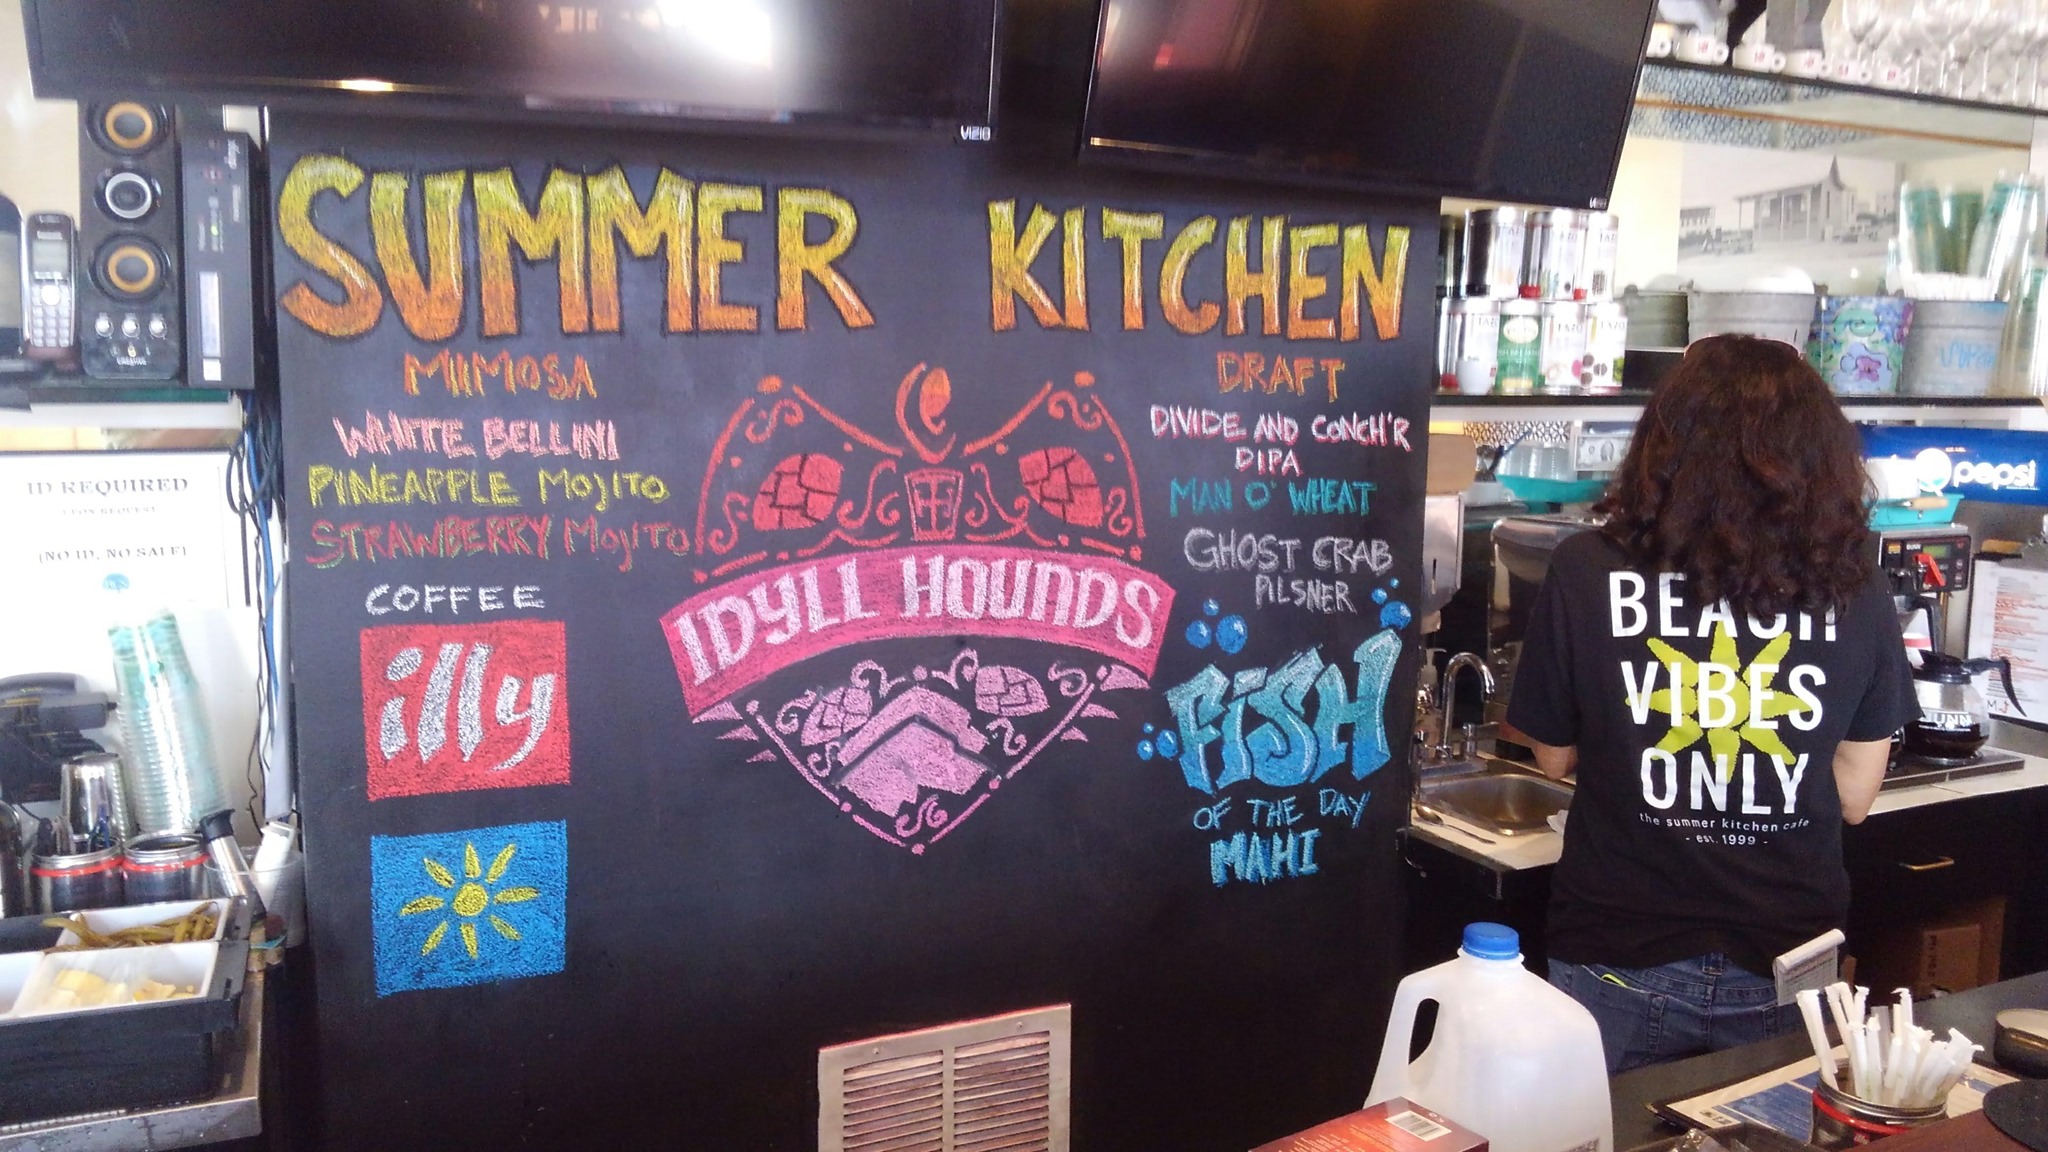 VIZIO
SUMMER KITCHEN
MIMOSA
WHITE BELLINI
PINEAPPLE MOJITO
STRAWBERRY MOJITO
COFFEE
illy
IDYLL HOUNDS
DRAFT
DIVIDE AND CONCH'R
DIPA
MAN O' WHEAT
GHOST CRAB
PILSNER
FISH
OF THE DAY
MAHI
ID REQUIRED
UPON REQUEST
(NO ID, NO SALE)
CREATIVE
TAZO
TAZO
pepsi
BUNN
BEACH
VIBES
ONLY
the summer kitchen cafe
- est. 1999 -